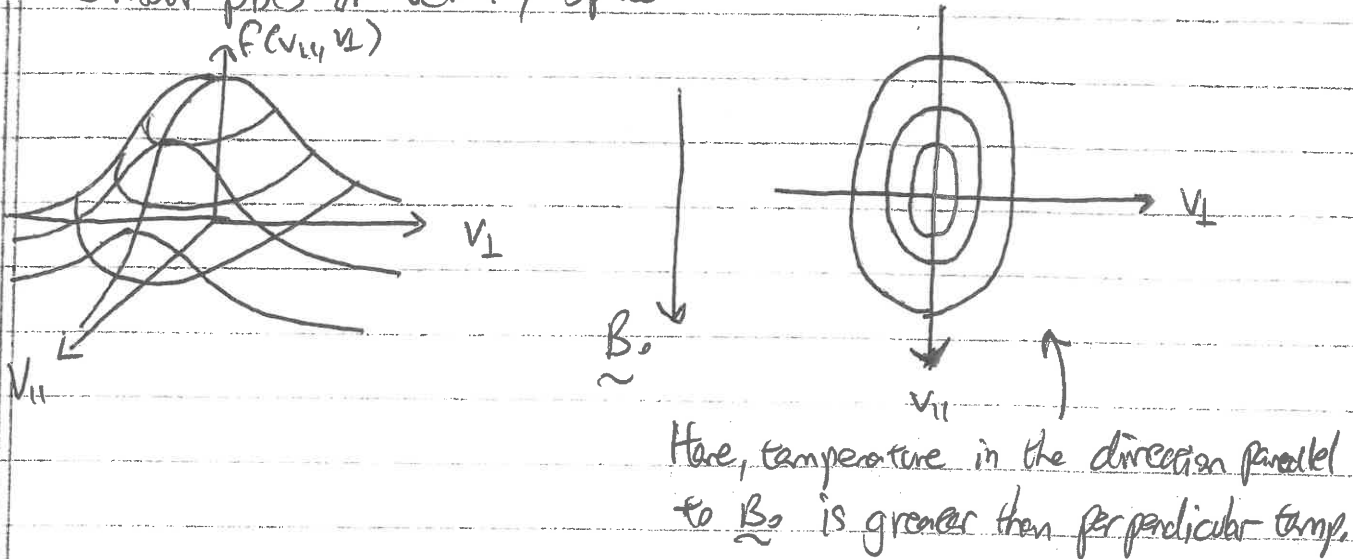 f(v∥, v⊥)
v⊥
V∥
B₀
v⊥
v∥
Here, temperature in the direction parallel
to B₀ is greater than perpendicular temp.